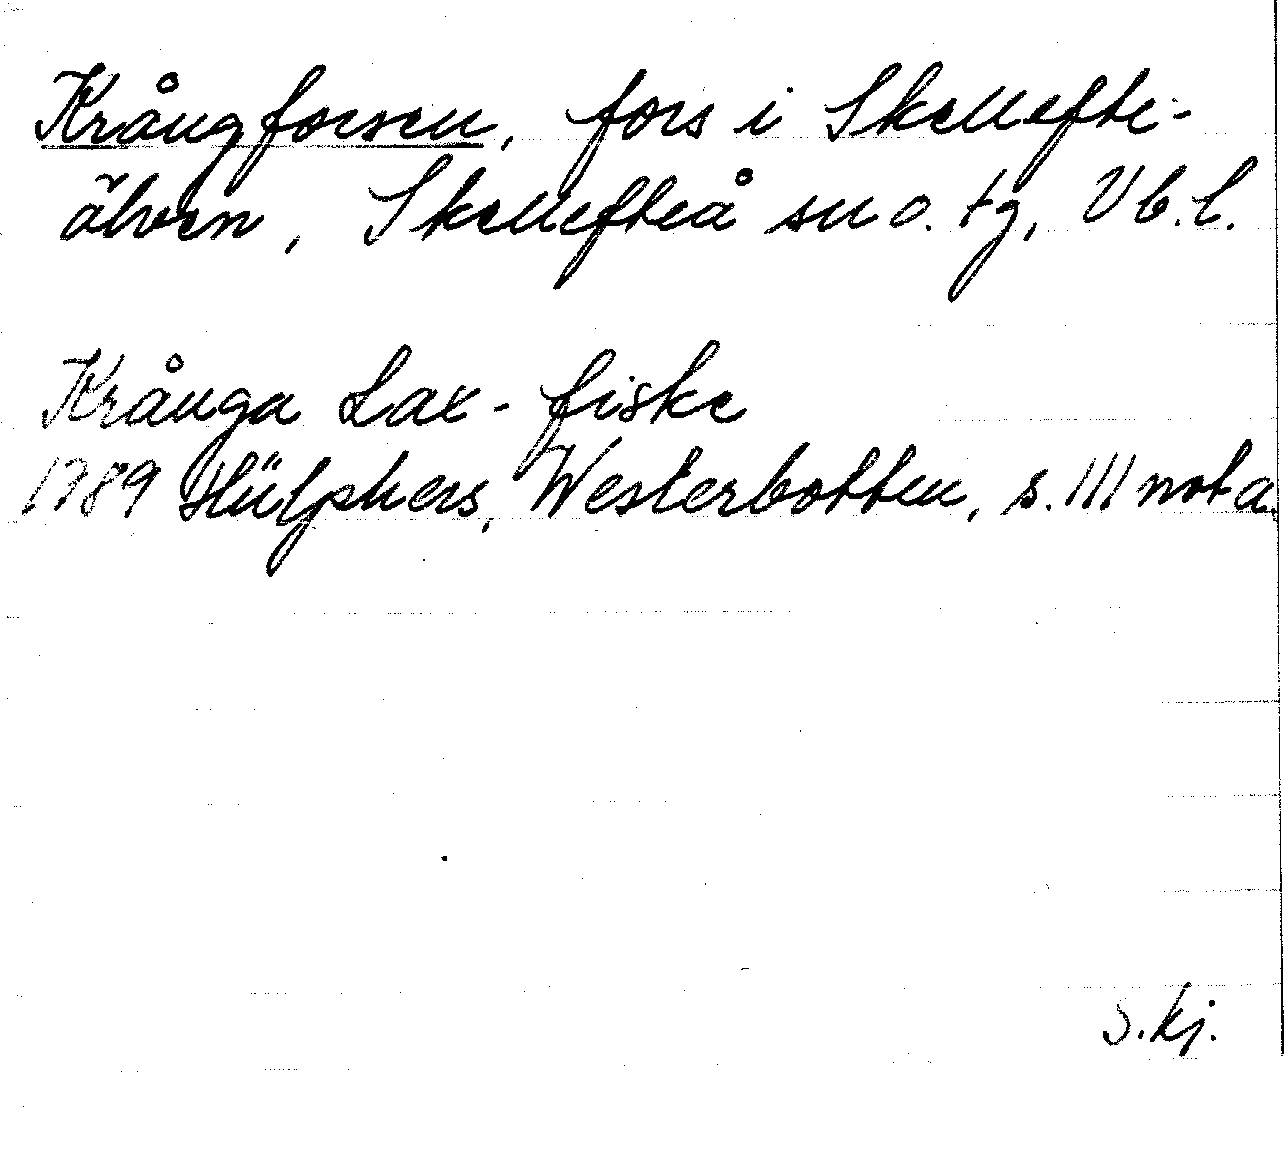 Krångforsen, fors i Skellefte-
älven, Skellefteå sn o. tg, Vb.l.
Krånga Lax-fiske
1789 Hülphers, Westerbotten, s. 111 nota.
S.Kj.